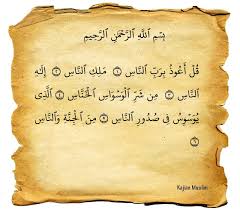 بِسْمِ ٱللَّهِ ٱلرَّحْمَٰنِ ٱلرَّحِيمِ
قُلْ أَعُوذُ بِرَبِّ ٱلنَّاسِ ۝١ مَلِكِ ٱلنَّاسِ ۝٢ إِلَٰهِ
ٱلنَّاسِ ۝٣ مِن شَرِّ ٱلْوَسْوَاسِ ٱلْخَنَّاسِ ۝٤ ٱلَّذِى
يُوَسْوِسُ فِى صُدُورِ ٱلنَّاسِ ۝٥ مِنَ ٱلْجِنَّةِ وَٱلنَّاسِ
۝٦
Kajian Muslim